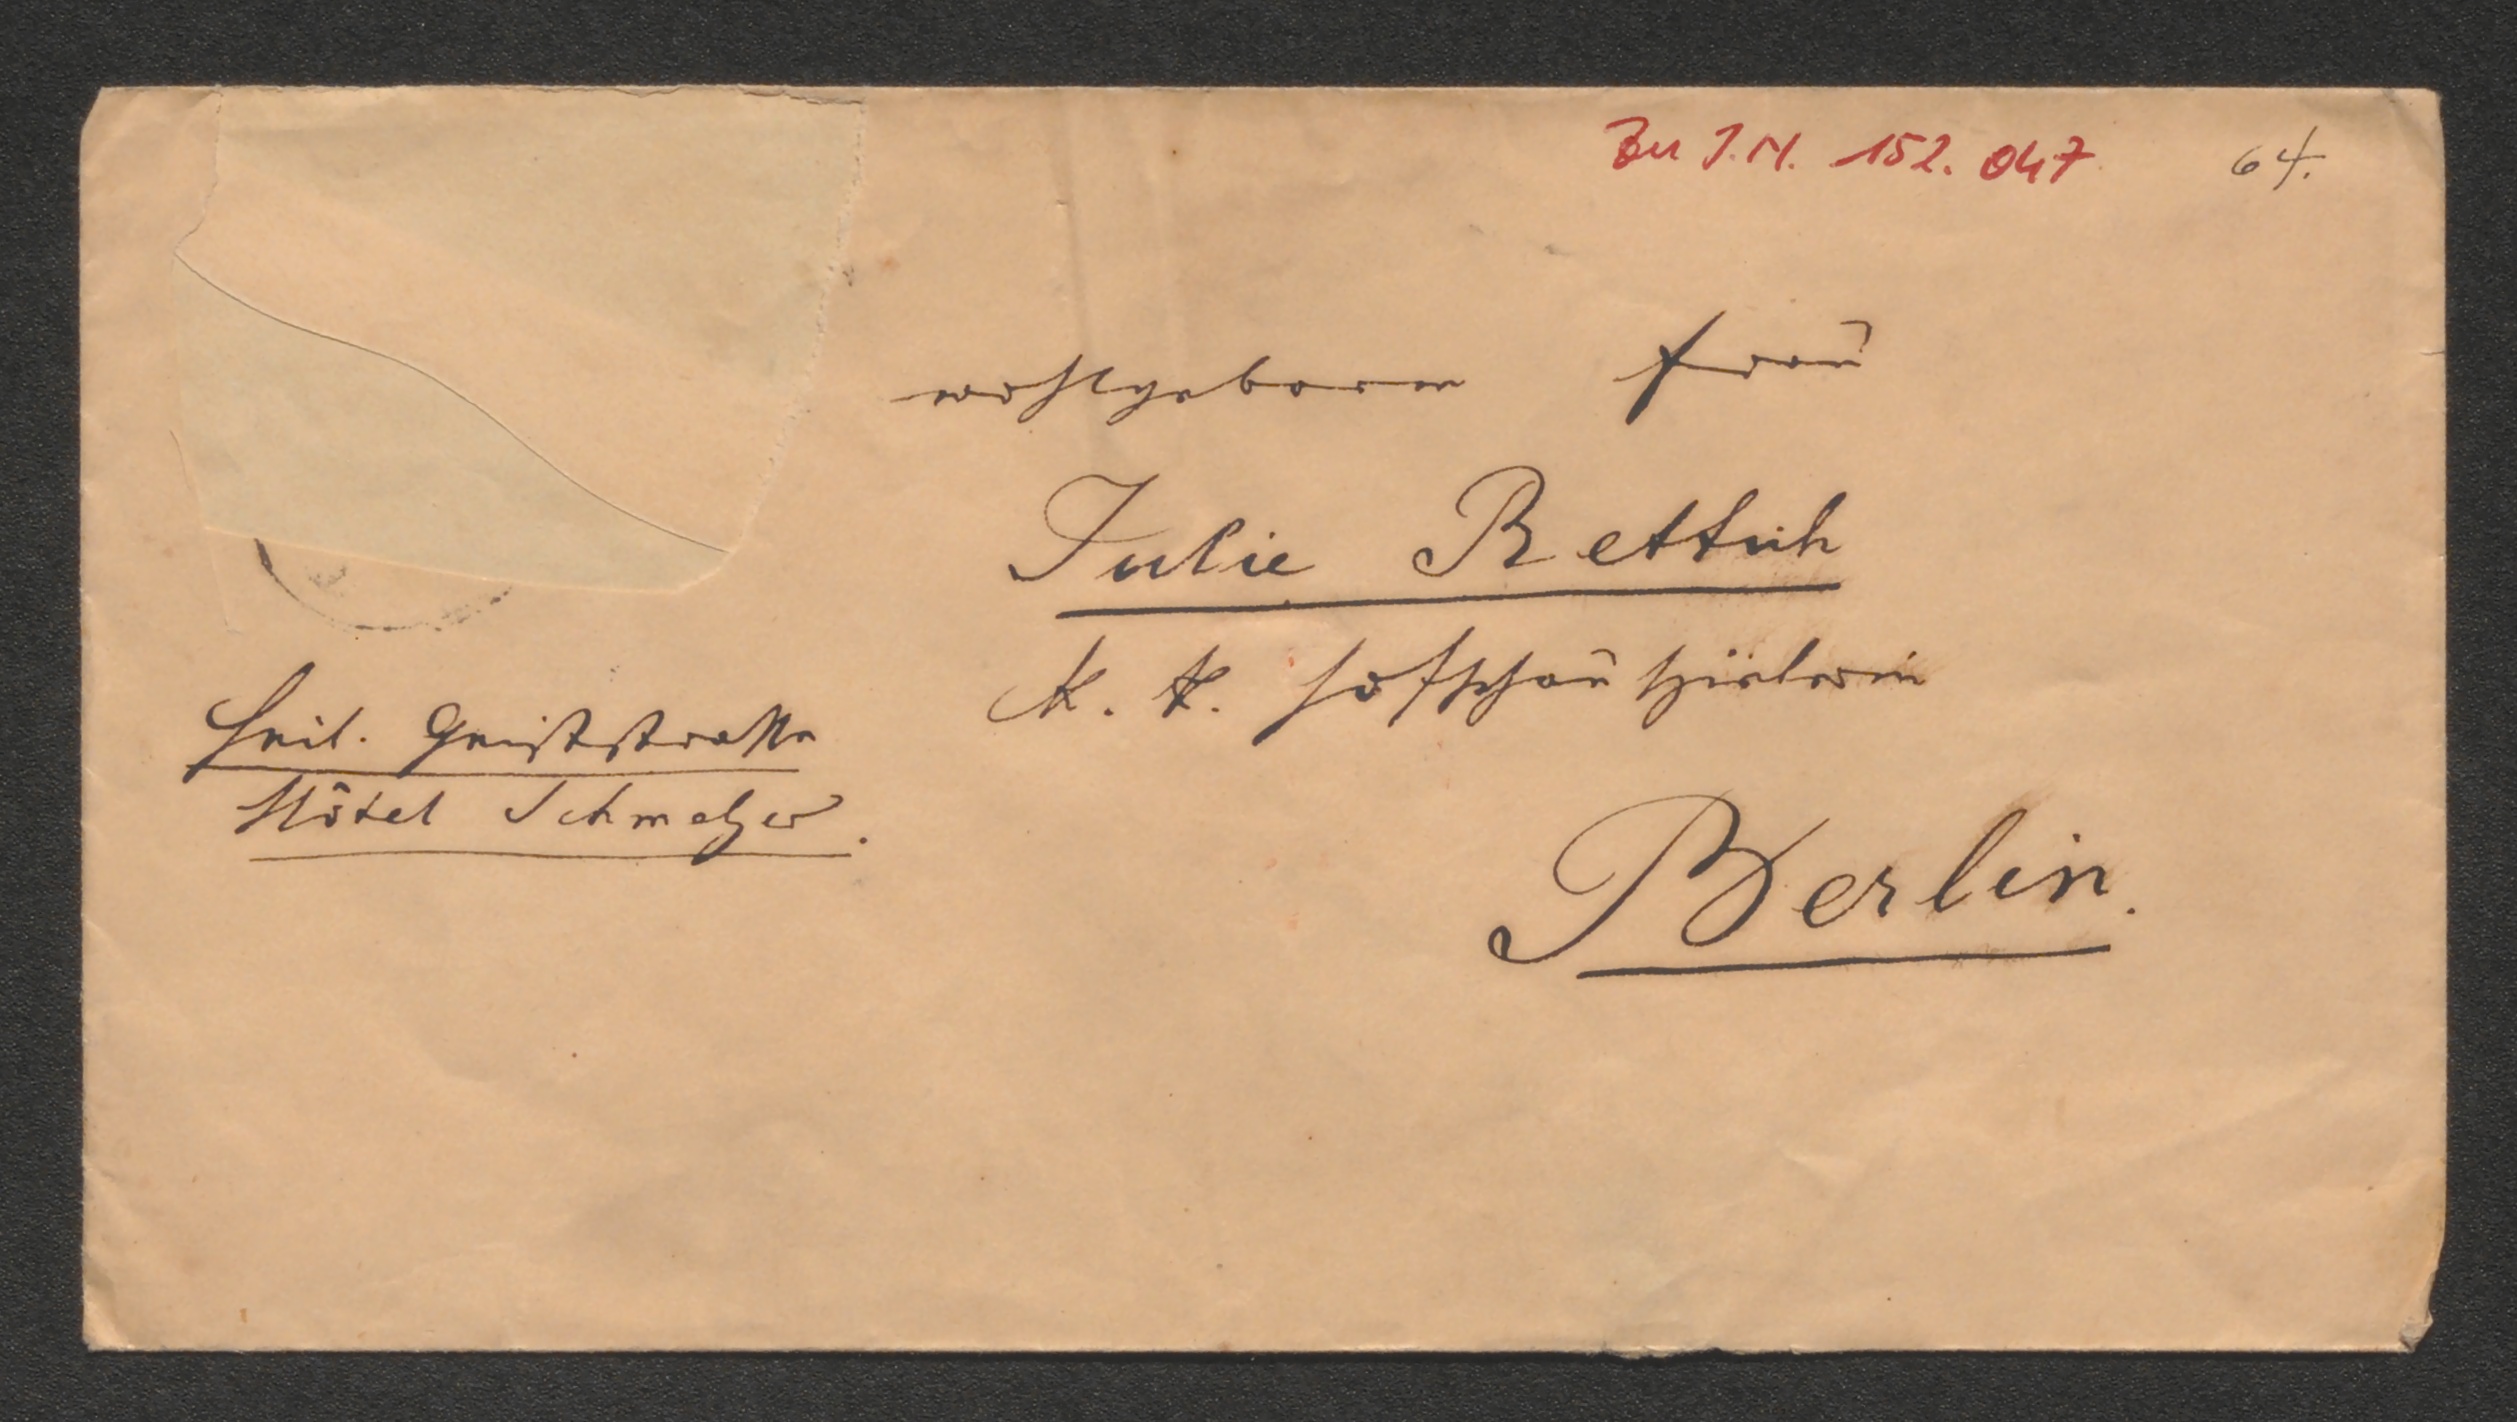 Zu I.N. 152.047
64.
wohlgeborne Frau
Julie Rettich
k. k. Hofschauspielerin
Heil. Geiststrasse
Hôtel Schmelzer.
Berlin.